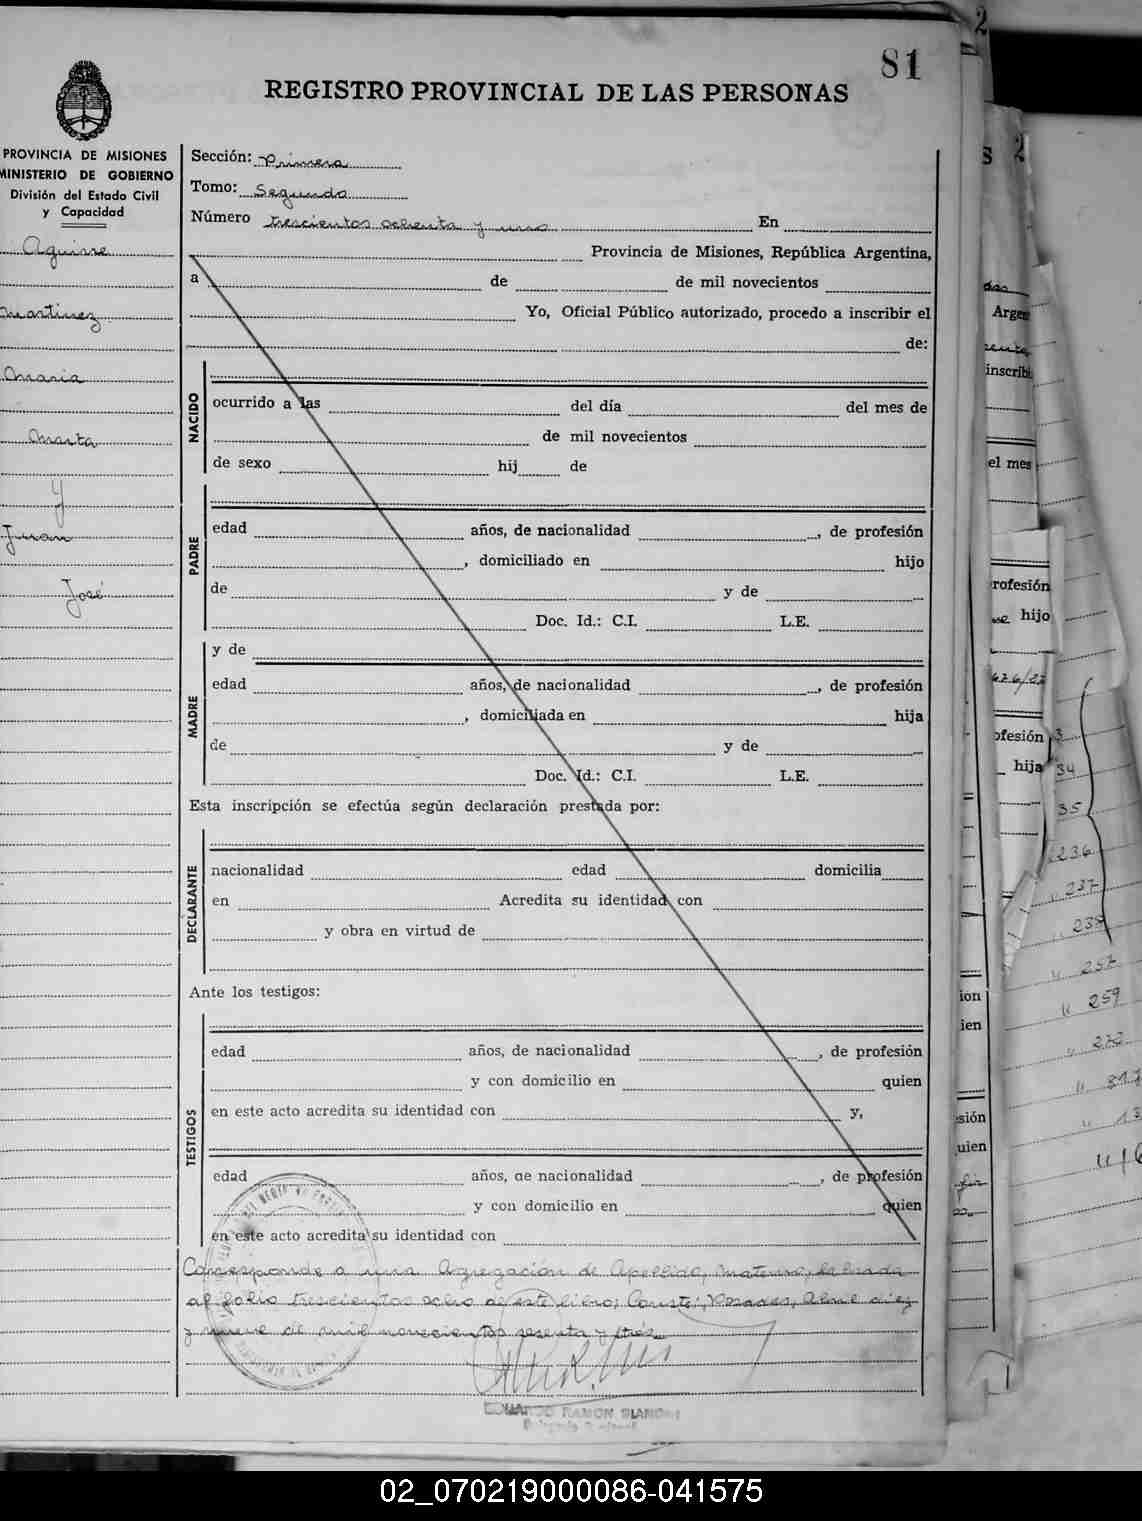 81
REGISTRO PROVINCIAL DE LAS PERSONAS
PROVINCIA DE MISIONES
MINISTERIO DE GOBIERNO
División del Estado Civil
y Capacidad
Aguirre
Martinez
Maria
Marta
y
Juan
José
Sección: Primera
Tomo: Segundo
Número trescientos ochenta y uno En
Provincia de Misiones, República Argentina,
a de de mil novecientos
Yo, Oficial Público autorizado, procedo a inscribir el
de:
NACIDO
ocurrido a las del día del mes de
de mil novecientos
de sexo hij de
PADRE
edad años, de nacionalidad , de profesión
, domiciliado en hijo
de y de
Doc. Id.: C.I. L.E.
MADRE
y de
edad años, de nacionalidad , de profesión
, domiciliada en hija
de y de
Doc. Id.: C.I. L.E.
Esta inscripción se efectúa según declaración prestada por:
DECLARANTE
nacionalidad edad domicilia
en Acredita su identidad con
y obra en virtud de
Ante los testigos:
TESTIGOS
edad años, de nacionalidad , de profesión
y con domicilio en quien
en este acto acredita su identidad con y,
edad años, de nacionalidad , de profesión
y con domicilio en quien
en este acto acredita su identidad con
Corresponde a una Agregación de Apellido, Materno, labrada
al folio trescientos ocho de este libro; Conste; Posadas, Abril diez
y nueve de mil novecientos sesenta y tres
EDUARDO RAMON BIANCHI
2
s 2
Argen
inscribi
el mes
rofesión
hijo
ofesión
hija
34
35
236
237
238
257
259
272
ión
ien
sión
uien
02_070219000086-041575